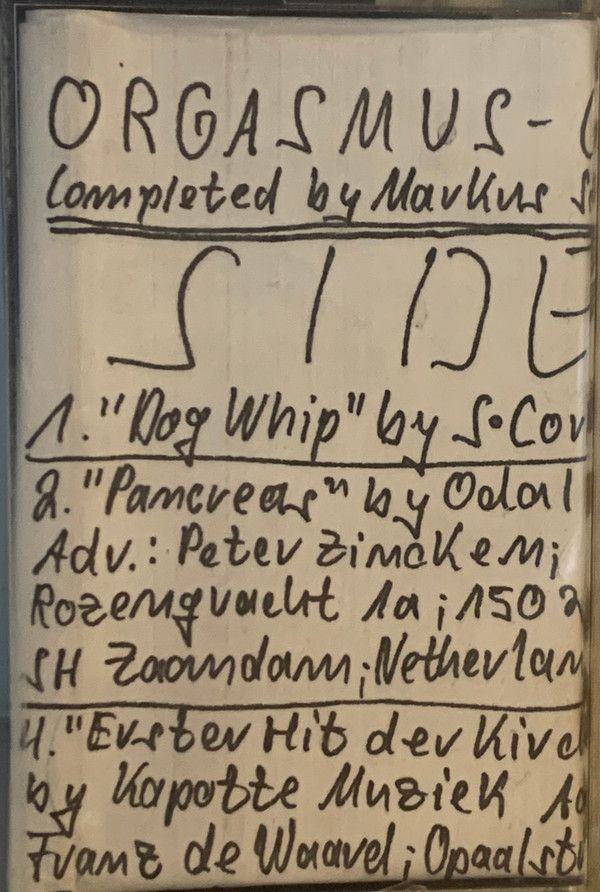 ORGASMUS-
Completed by Markus
SIDE
1. "Dog Whip" by S.Cor
2. "Pancreas" by Odal
Adv.: Peter Zinckem;
Rozengracht 1a; 1502
SH Zaandam; Netherlan
4. "Erster Hit der Kirc
by Kapotte Muziek A
Franz de Waavel; Opaalst